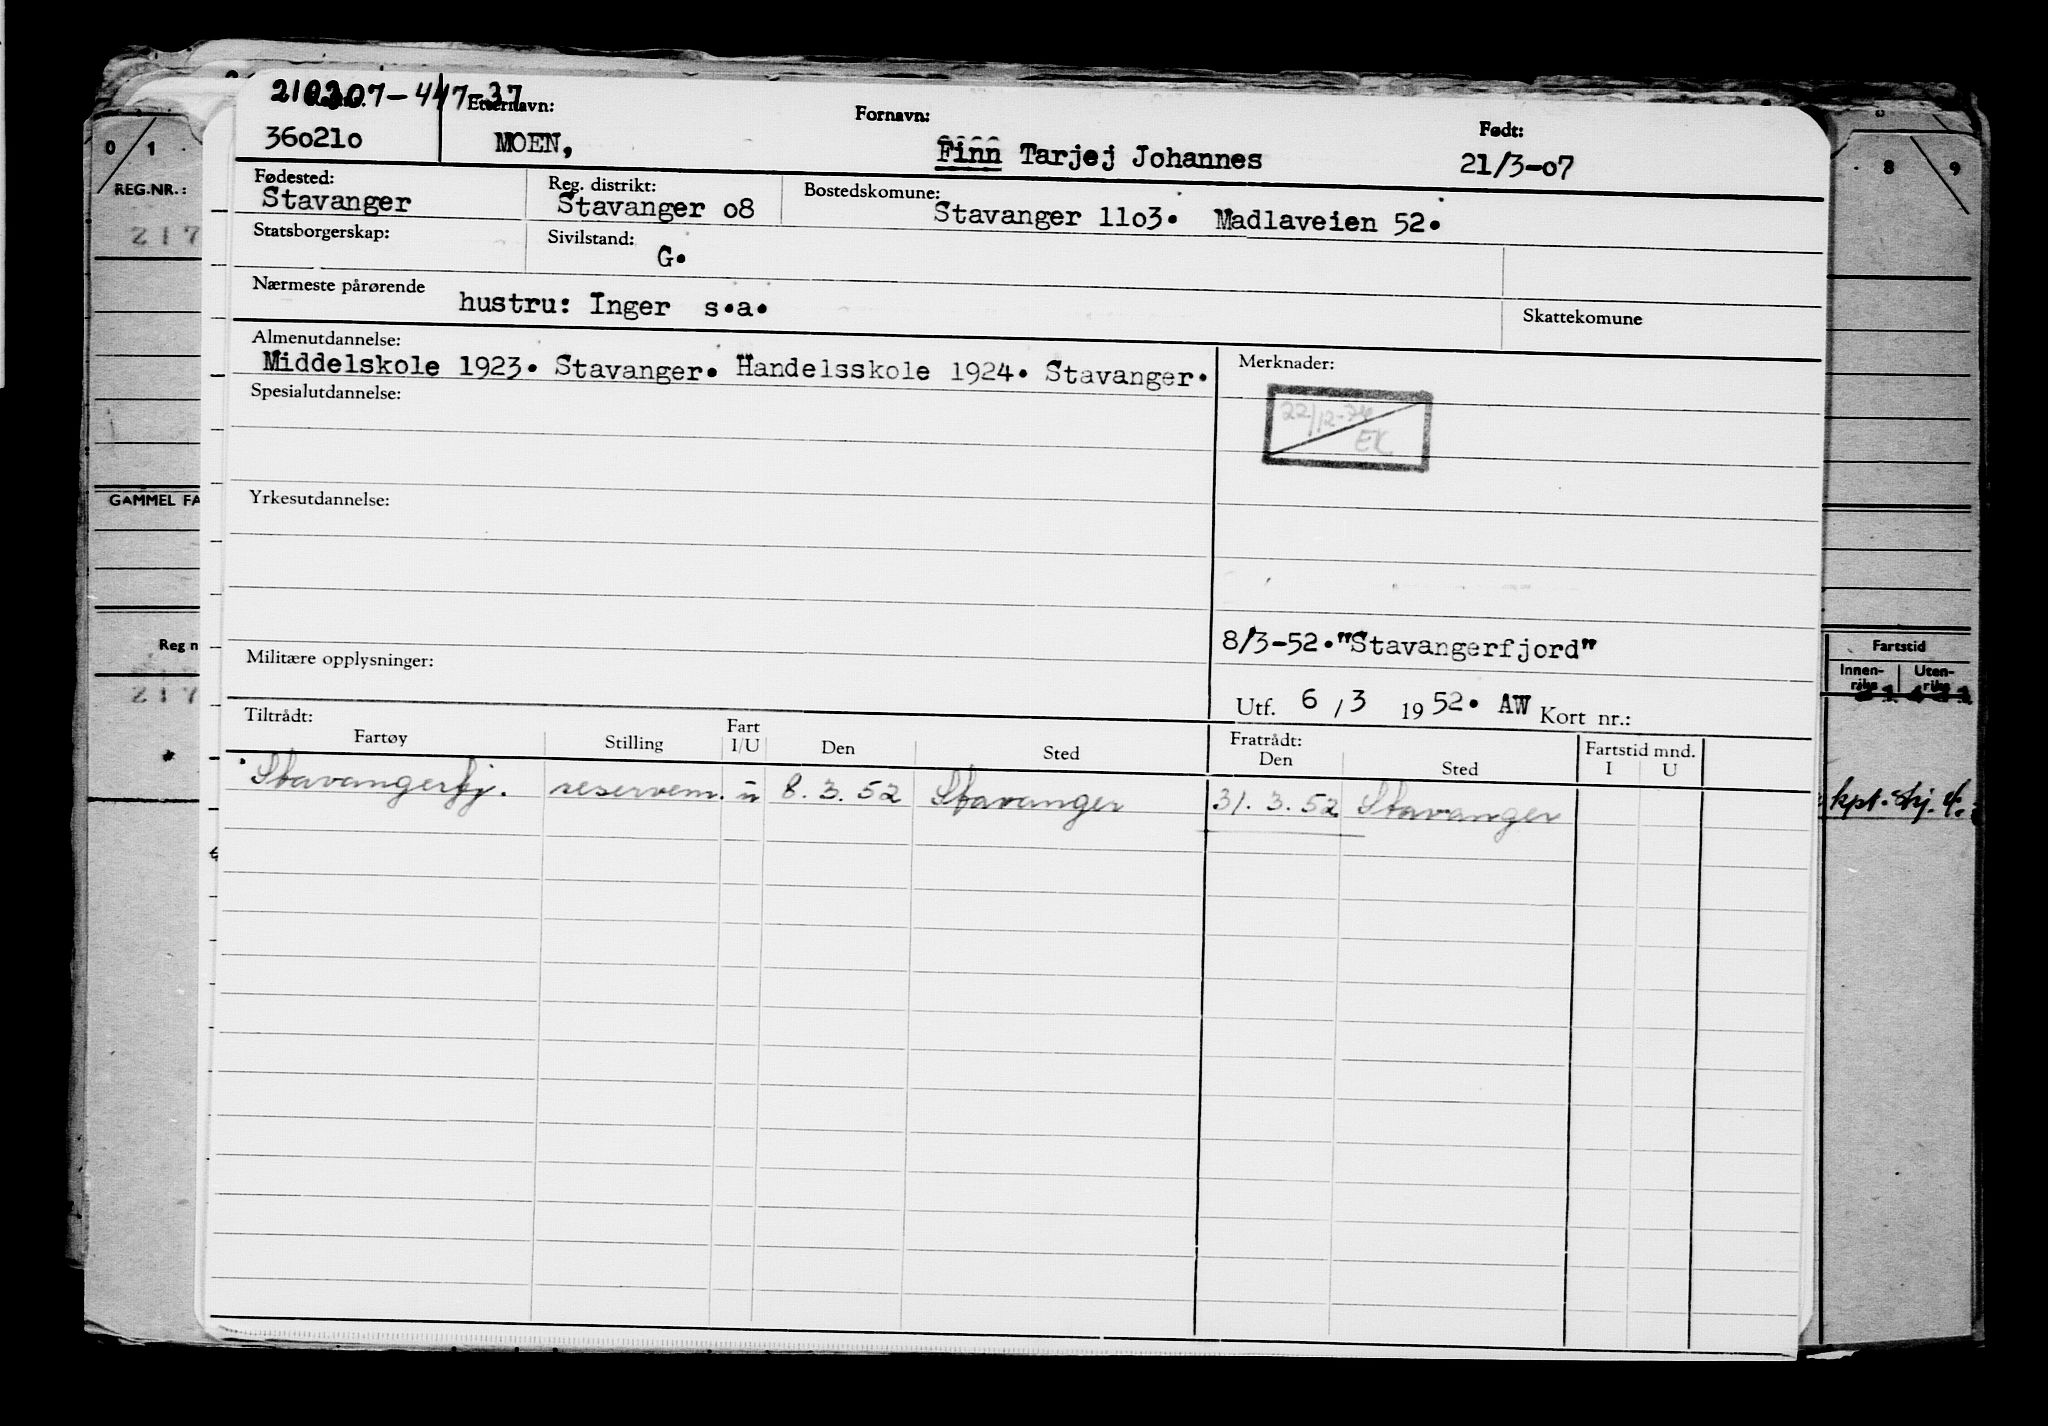 210307-447-37
360210
Etternavn:
MOEN,
Fornavn:
Finn Tarjej Johannes
Født:
21/3-07
Fødested:
Stavanger
Reg. distrikt:
Stavanger 08
Bostedskomune:
Stavanger 1103. Madlaveien 52.
Statsborgerskap:
Sivilstand:
G.
Nærmeste pårørende
hustru: Inger s.a.
Skattekomune
Almenutdannelse:
Middelskole 1923. Stavanger. Handelsskole 1924. Stavanger.
Merknader:
22/12-74
EK
Spesialutdannelse:
Yrkesutdannelse:
8/3-52."Stavangerfjord"
Militære opplysninger:
Utf. 6/3 1952. AW Kort nr.:
Tiltrådt:
Fartøy
Stilling
Fart
I/U
Den
Sted
Fratrådt:
Den
Sted
Fartstid mnd.
I U
Stavangerfj. reservem. u 8.3.52 Stavanger 31.3.52 Stavanger
0 1
REG.NR.:
217
GAMMEL FA
Reg n
217
8 9
Fartstid
Innen-
riks
Uten-
riks
kpt. stj.